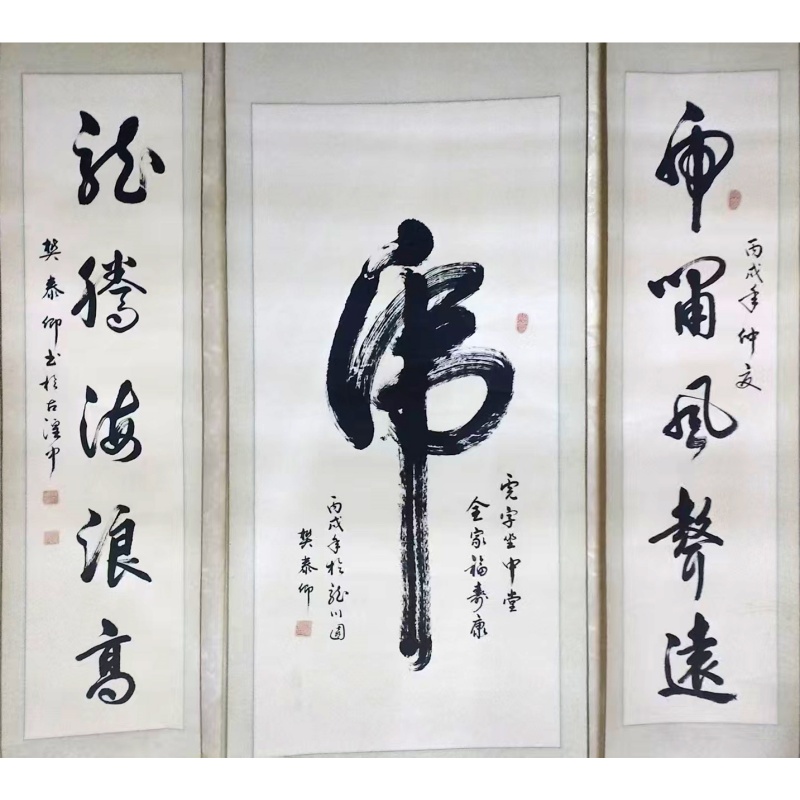 虎嘯風聲遠
丙戌年仲夏
虎
虎字坐中堂
全家福壽康
丙戌年於龍川園
樊泰仰
龍騰海浪高
樊泰仰书於古漢中